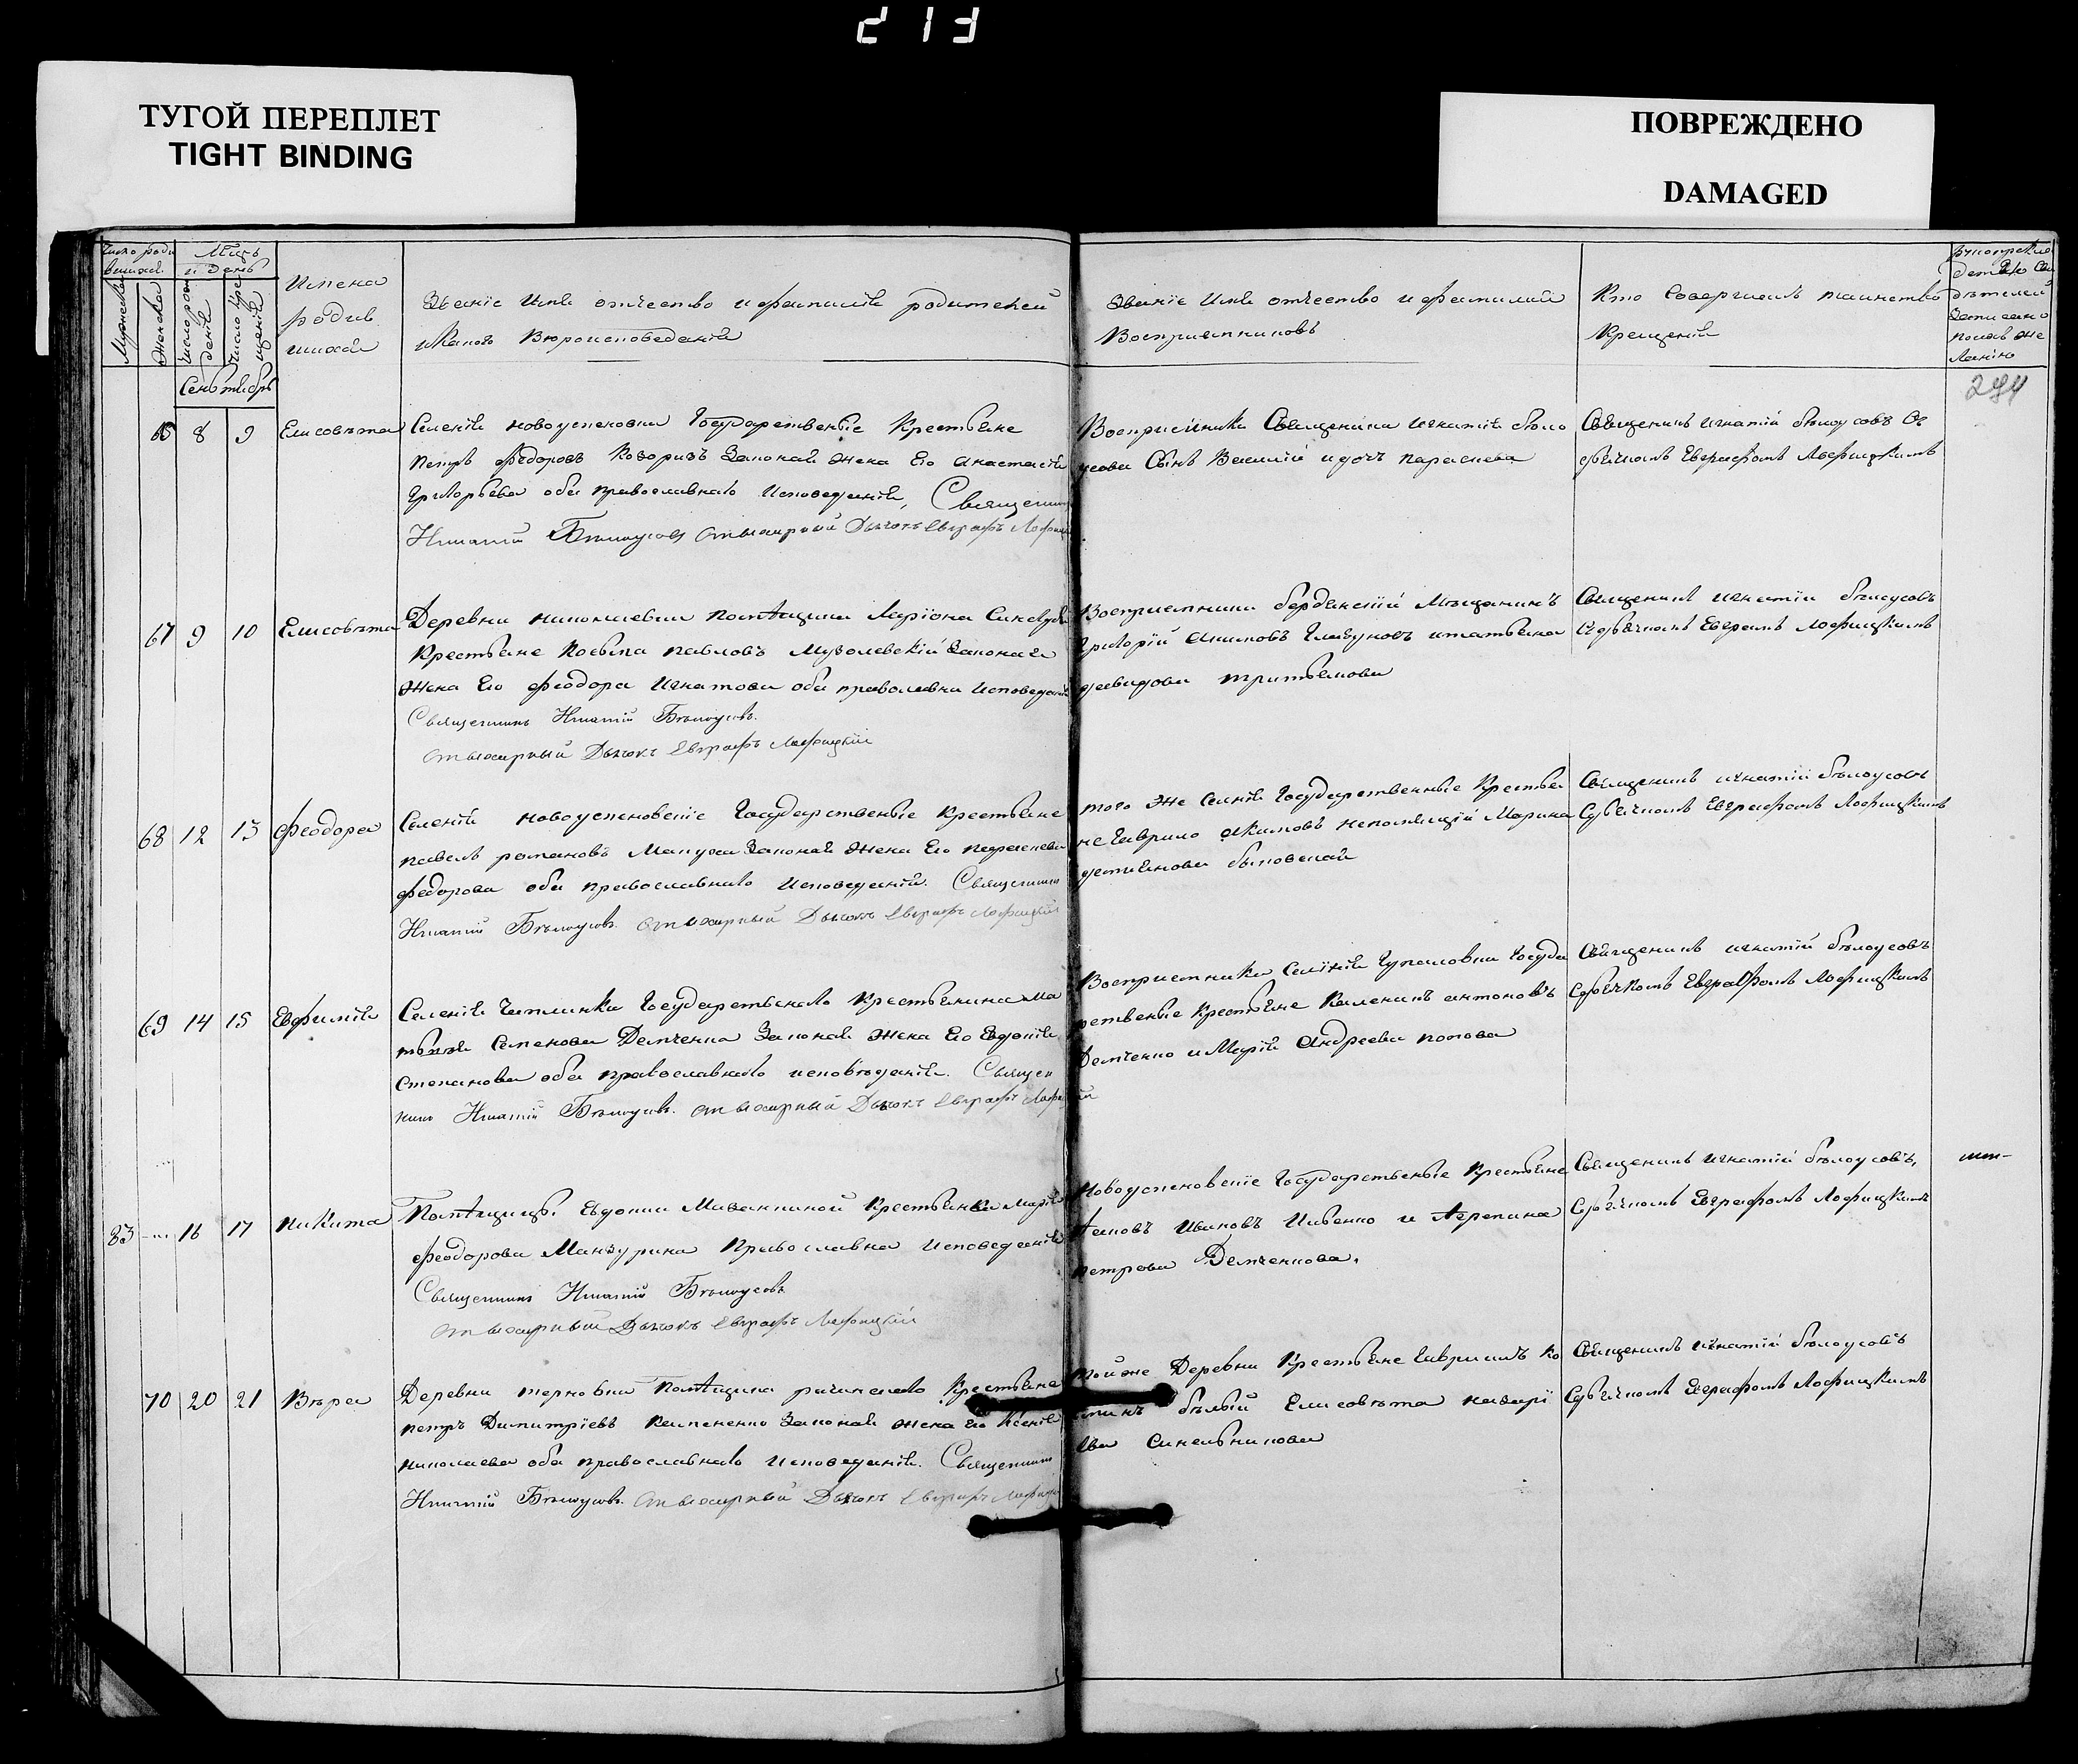 213
ТУГОЙ ПЕРЕПЛЕТ
TIGHT BINDING
ПОВРЕЖДЕНО
DAMAGED
Число роди
вшихся
Мужеска
Женска
Мцъ
и день
Число рож
денія
Число кре
щенія
Имена
родив
шихся
Званіе Имя отчество и фамилія родителей
и какого Вѣроисповеданія
Званіе Имя отчество и фамилій
Восприемниковъ
Кто Совершалъ таинство
Крещенія
Сентябрь
294
66 8 9 Елисовѣта
Селенія новоуспеновки Государственые Крестьяне
петръ федоровъ Козоризъ Законая жена Его анастасія
Григорьева оба православнаго Исповеданія, Священикъ
Игнатій Бѣлоусовъ Стихарный Дьячокъ Евграфъ Лофицкій
Восприемники Священика игнатія бѣло
усова Сынъ Василій и доч параскева
Священикъ игнатій бѣлоусовъ Съ
дьячкомъ Евграфомъ Лофицкимъ
67 9 10 Елисовѣта
Деревни николаевки помѣщика Ларіона
Крестьяне Косьма павловъ Музолевскій Законая
Жена Его феодора Игнатова оба православна Исповеданія
Священникъ Игнатій Бѣлоусовъ.
Стихарный Дьячокъ Евграфъ Лофицкій
Восприемники бердянскій Мѣщанинъ
Григорій Глазуновъ и татьяна
давидова
Священикъ игнатій бѣлоусовъ
Сдьячкомъ Евграфомъ Лофицкимъ
68 12 13 феодора
Селенія новоуспеновкіе Государственые Крестьяне
павелъ романовъ Мануха Законая жена Его параскева
федорова оба православнаго Исповеданія. Священникъ
Игнатій Бѣлоусовъ Стихарный Дьячокъ Евграфъ Лофицкій
того же Селенія Государственные Крестья
не Гаврило акимовъ Марина
Священикъ игнатій бѣлоусовъ
Сдьячкомъ Евграфомъ Лофицкимъ
69 14 15 Евфимія
Селенія Государственаго Крестьянина Ма
Семенова Демченка Законая жена Его Евдокія
Степанова оба православнаго исповѣданія. Священ
никъ Игнатій Бѣлоусовъ. Стихарный Дьячокъ Евграфъ Лофицкій
Восприемники Селенія Гусаловки Госуда
рственые Крестьяне Каленикъ антоновъ
Демченко и Марія Андреева попова
Священикъ игнатій бѣлоусовъ
Сдьячкомъ Евграфомъ Лофицкимъ
83 16 17 никита
Помѣщицы Евдокии Крестьянка Марія
феодорова Манжурина Православна Исповеданія
Священникъ Игнатій Бѣлоусовъ
Стихарный Дьячокъ Евграфъ Лофицкій
Новоуспеновкіе Государственые Крестьяне
Ивановъ и Агрепина
петрова Демченкова.
Священикъ Игнатій бѣлоусовъ,
Сдьячкомъ Евграфомъ Лофицкимъ
70 20 21 Вѣра
Деревни терновки помѣщика Крестьяне
петръ Димитріевъ Законая жена Его Ксенія
николаева оба православнаго Исповеданія. Священникъ
Игнатій Бѣлоусовъ. Стихарный Дьячокъ Евграфъ Лофицкій
той же Деревни Крестьяне Гавриилъ
бѣлый Елисовѣта назарі
ева Синельникова
Священикъ игнатій бѣлоусовъ
Сдьячкомъ Евграфомъ Лофицкимъ